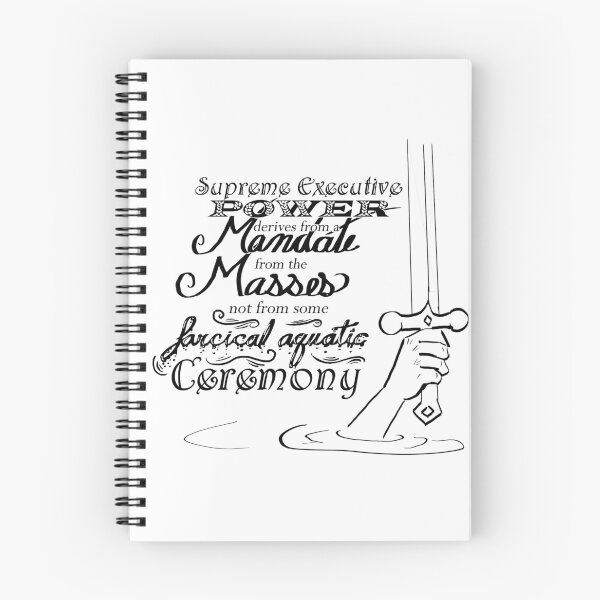 Supreme Executive
POWER
derives from a
Mandate
from the
Masses
not from some
farcical aquatic
Ceremony